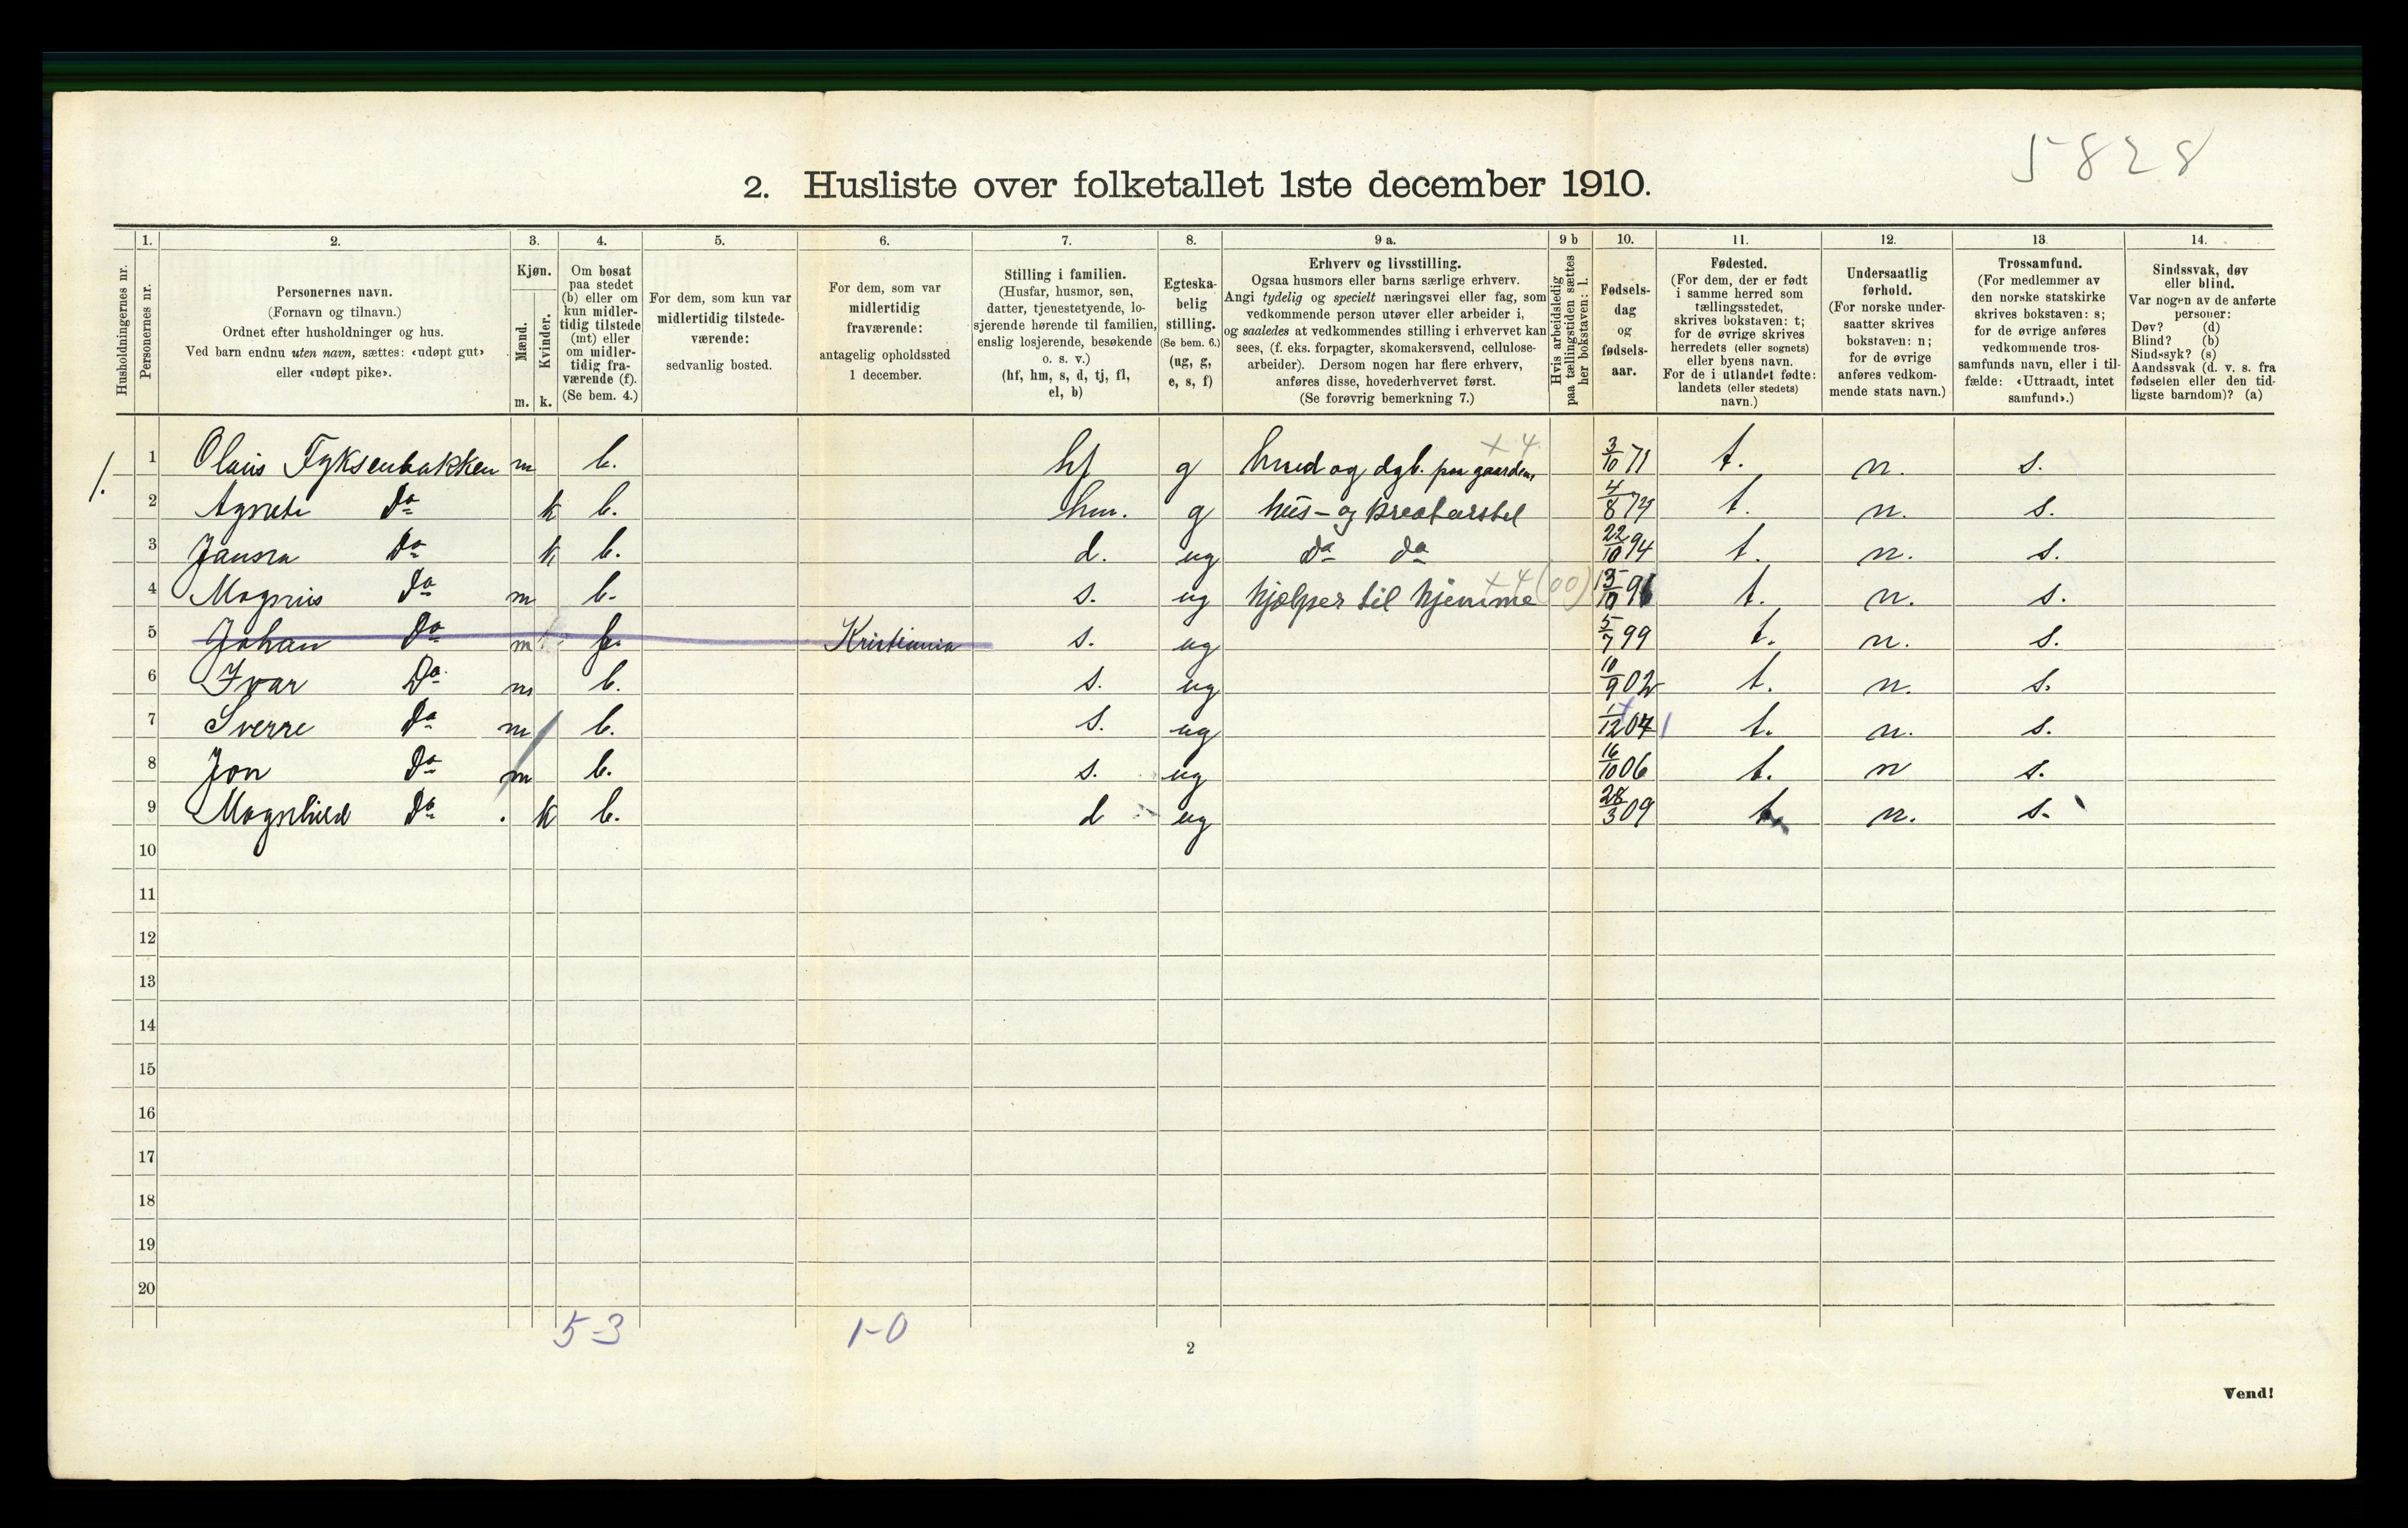 5828
2. Husliste over folketallet 1ste december 1910.
Husholdningernes nr.
1.
Personernes nr.
2.
Personernes navn.
(Fornavn og tilnavn.)
Ordnet efter husholdninger og hus.
Ved barn endnu uten navn, sættes: «udøpt gut»
eller «udøpt pike».
3.
Kjøn.
Mænd.
Kvinder.
m. k.
4.
Om bosat
paa stedet
(b) eller om
kun midler-
tidig tilstede
(mt) eller
om midler-
tidig fra-
værende (f).
(Se bem. 4.)
5.
For dem, som kun var
midlertidig tilstede-
værende:
sedvanlig bosted.
6.
For dem, som var
midlertidig
fraværende:
antagelig opholdssted
1 december.
7.
Stilling i familien.
(Husfar, husmor, søn,
datter, tjenestetyende, lo-
sjerende hørende til familien,
enslig losjerende, besøkende
o. s. v.)
(hf, hm, s, d, tj, fl,
el, b)
8.
Egteska-
belig
stilling.
(Se bem. 6.)
(ug, g,
e, s, f)
9 a.
Erhverv og livsstilling.
Ogsaa husmors eller barns særlige erhverv.
Angi tydelig og specielt næringsvei eller fag, som
vedkommende person utøver eller arbeider i,
og saaledes at vedkommendes stilling i erhvervet kan
sees, (f. eks. forpagter, skomakersvend, cellulose-
arbeider). Dersom nogen har flere erhverv,
anføres disse, hovederhvervet først.
(Se forøvrig bemerkning 7.)
9 b
Hvis arbeidsledig
paa tællingstiden sættes
her bokstaven: l.
10.
Fødsels-
dag
og
fødsels-
aar.
11.
Fødested.
(For dem, der er født
i samme herred som
tællingsstedet,
skrives bokstaven: t;
for de øvrige skrives
herredets (eller sognets)
eller byens navn.
For de i utlandet fødte:
landets (eller stedets)
navn.)
12.
Undersaatlig
forhold.
(For norske under-
saatter skrives
bokstaven: n;
for de øvrige
anføres vedkom-
mende stats navn.)
13.
Trossamfund.
(For medlemmer av
den norske statskirke
skrives bokstaven: s;
for de øvrige anføres
vedkommende tros-
samfunds navn, eller i til-
fælde: «Uttraadt, intet
samfund».)
14.
Sindssvak, døv
eller blind.
Var nogen av de anførte
personer:
Døv? (d)
Blind? (b)
Sindssyk? (s)
Aandssvak (d. v. s. fra
fødselen eller den tid-
ligste barndom)? (a)
1. 1 Olaus Fyksenbakken m b. hf g hmd og dgb. paa gaarden, +4. 3/10 71 t. n. s.
2 Agnete Do k b. hm. g hus- og kreaturstel 4/8 74 t. n. s.
3 Do k b. d. ug Do Do 22/10 94 t. n. s.
4 Magnus Do m b. s. ug hjælper til hjemme +4 (00) t. n. s.
5 Johan Do m f. Kristiania s. ug 5/7 99 t. n. s.
6 Ivar Do m b. s. ug 10/9 02 t. n. s.
7 Sverre Do m b. s. ug 1/12 04 t. n. s.
8 Jon Do m b. s. ug 16/10 06 t. n s.
9 Magnhild Do k b. d ug 28/3 09 t. n. s.
10
11
12
13
14
15
16
17
18
19
20
5-3 1-0
2
Vend!